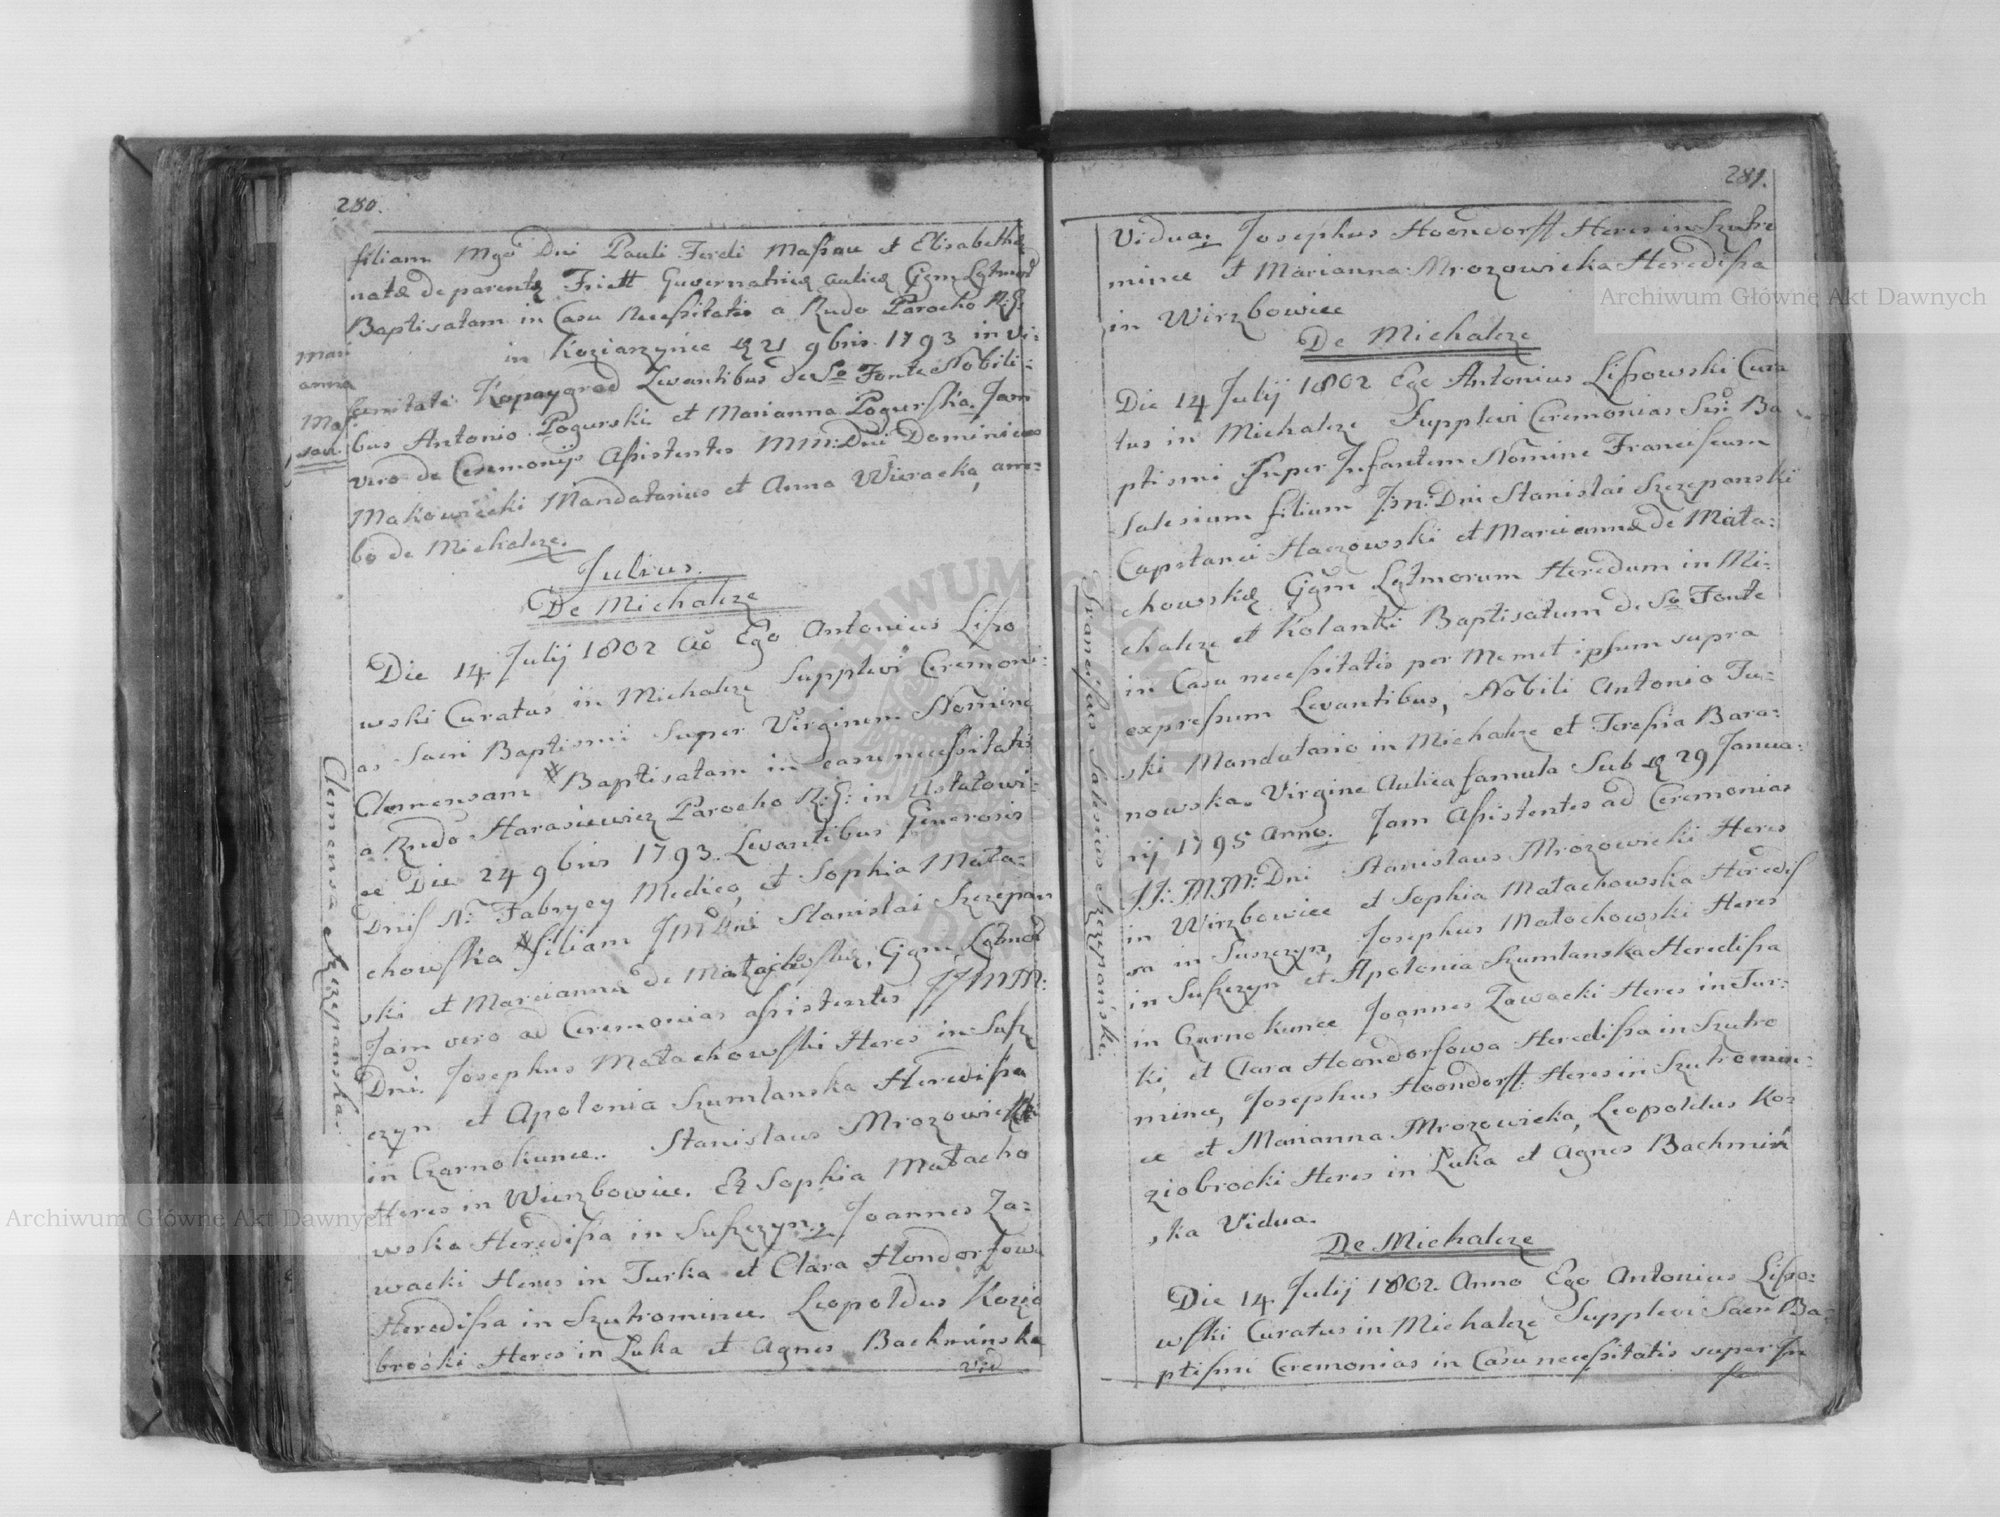 280.
filiam Mgō Dni Pauli Ferdi Massau et Elisabethæ
natæ de parentę Friett Guvernatricis aulicę Cjgm Lgtmorū
Baptisatam in Casu Necessitatis a Rndo Parocho R: G:
in Koziarzynce 21 9bris 1793 in Vi-
Mari
anna
Mas
sau.
cinitate Kopaygrod Levantibus de So Fonte Nobili-
bus Antonio Pogurski et Marianna Pogurska. Jam
vero de Ceremonijs Assistentes MM: Dni Dominicus
Makowiecki Mandatarius et Anna Wieracka, am-
bo de Michalcze.
Julius.
De Michalcze
Die 14 Julij 1802 Ao Ego Antonius Lisso
wski Curatus in Michalcze Supplevi Ceremoni-
as Sacri Baptismi Super Virginem Nomine
Clemensam Baptisatam in casu necessitatis
a Rndo Harasiewicz Parocho R: G: in Ustatowi-
ce Die 24 9bris 1793. Levantibus Generosis
Dnis N: Fabrycy Medico, et Sophia Mała-
chowska filiam JM Dni Stanislai Szczepan
ski et Marcianna de Małachowskie, Cjgm, Lgtmorū
Jam vero ad Ceremonias assistentes JJMM:
Dni. Josephus Małachowski Heres in Susz
czyn et Apolonia Szumlanska Heredissa
in Czarnokunce.. Stanislaus Mrozowicki
Heres in Wierzbowiec. Et Sophia Małacho
wska Heredissa in Suszczyn, Joannes Za-
wacki Heres in Turka et Clara Hondorfowa
Heredissa in Szutromince. Leopoldus Kozio
brocki Heres in Luka et Agnes Bachminska
vid
Clemensa Szczepanska.
281.
Vidua. Josephus Hoondorff Heres in Szutro
mince et Marianna Mrozowicka Heredissa
in Wirzbowiec
De Michalcze
Die 14 Julij 1802 Ego Antonius Lissowski Cura
tus in Michalcze Supplevi Ceremonias Sri Ba
ptismi Super Infantem Nomine Franciscum
Salesium filium Jsn: Dni Stanislai Szczepanski
Capitanei Haczowski et Marciannæ de Mała-
chowskę Cjgm Lgtmorum Heredum in Mi-
chalcze et Kolanki Baptisatum de So Fonte
in Casu necessitatis per Memet ipsum supra
expressum Levantibus, Nobili Antonio Tu-
ski Mandatario in Michalcze et Teressia Bara-
nowska. Virgine Aulica famula Sub 29 Janua-
rij 1795 Anno. Jam Assistentes ad Ceremonias
JJ: MM: Dni Stanislaus Mrozowicki Heres
in Wirzbowiec et Sophia Małachowska Heredis
sa in Suszczyn, Josephus Małochowski Heres
in Suszczyn et Apolonia Szumlanska Heredissa
in Czarnokunce Joannes Zawacki Heres in Tur-
ki, et Clara Hoondorfowa Heredissa in Szutro
mince, Josephus Hoondorff Heres in Szutromin-
ce et Marianna Mrozowicka, Leopoldus Ko-
ziobrocki Heres in Luka et Agnes Bachmiń
ska Vidua.
Franciscus Salesius Szczepański.
De Michalcze
Die 14 Julij 1802. Anno Ego Antonius Lisso-
wski Curatus in Michalcze Supplevi Sacri Ba-
ptismi Ceremonias in Casu necessitatis super In
Archiwum Główne Akt Dawnych
Archiwum Główne Akt Dawnych